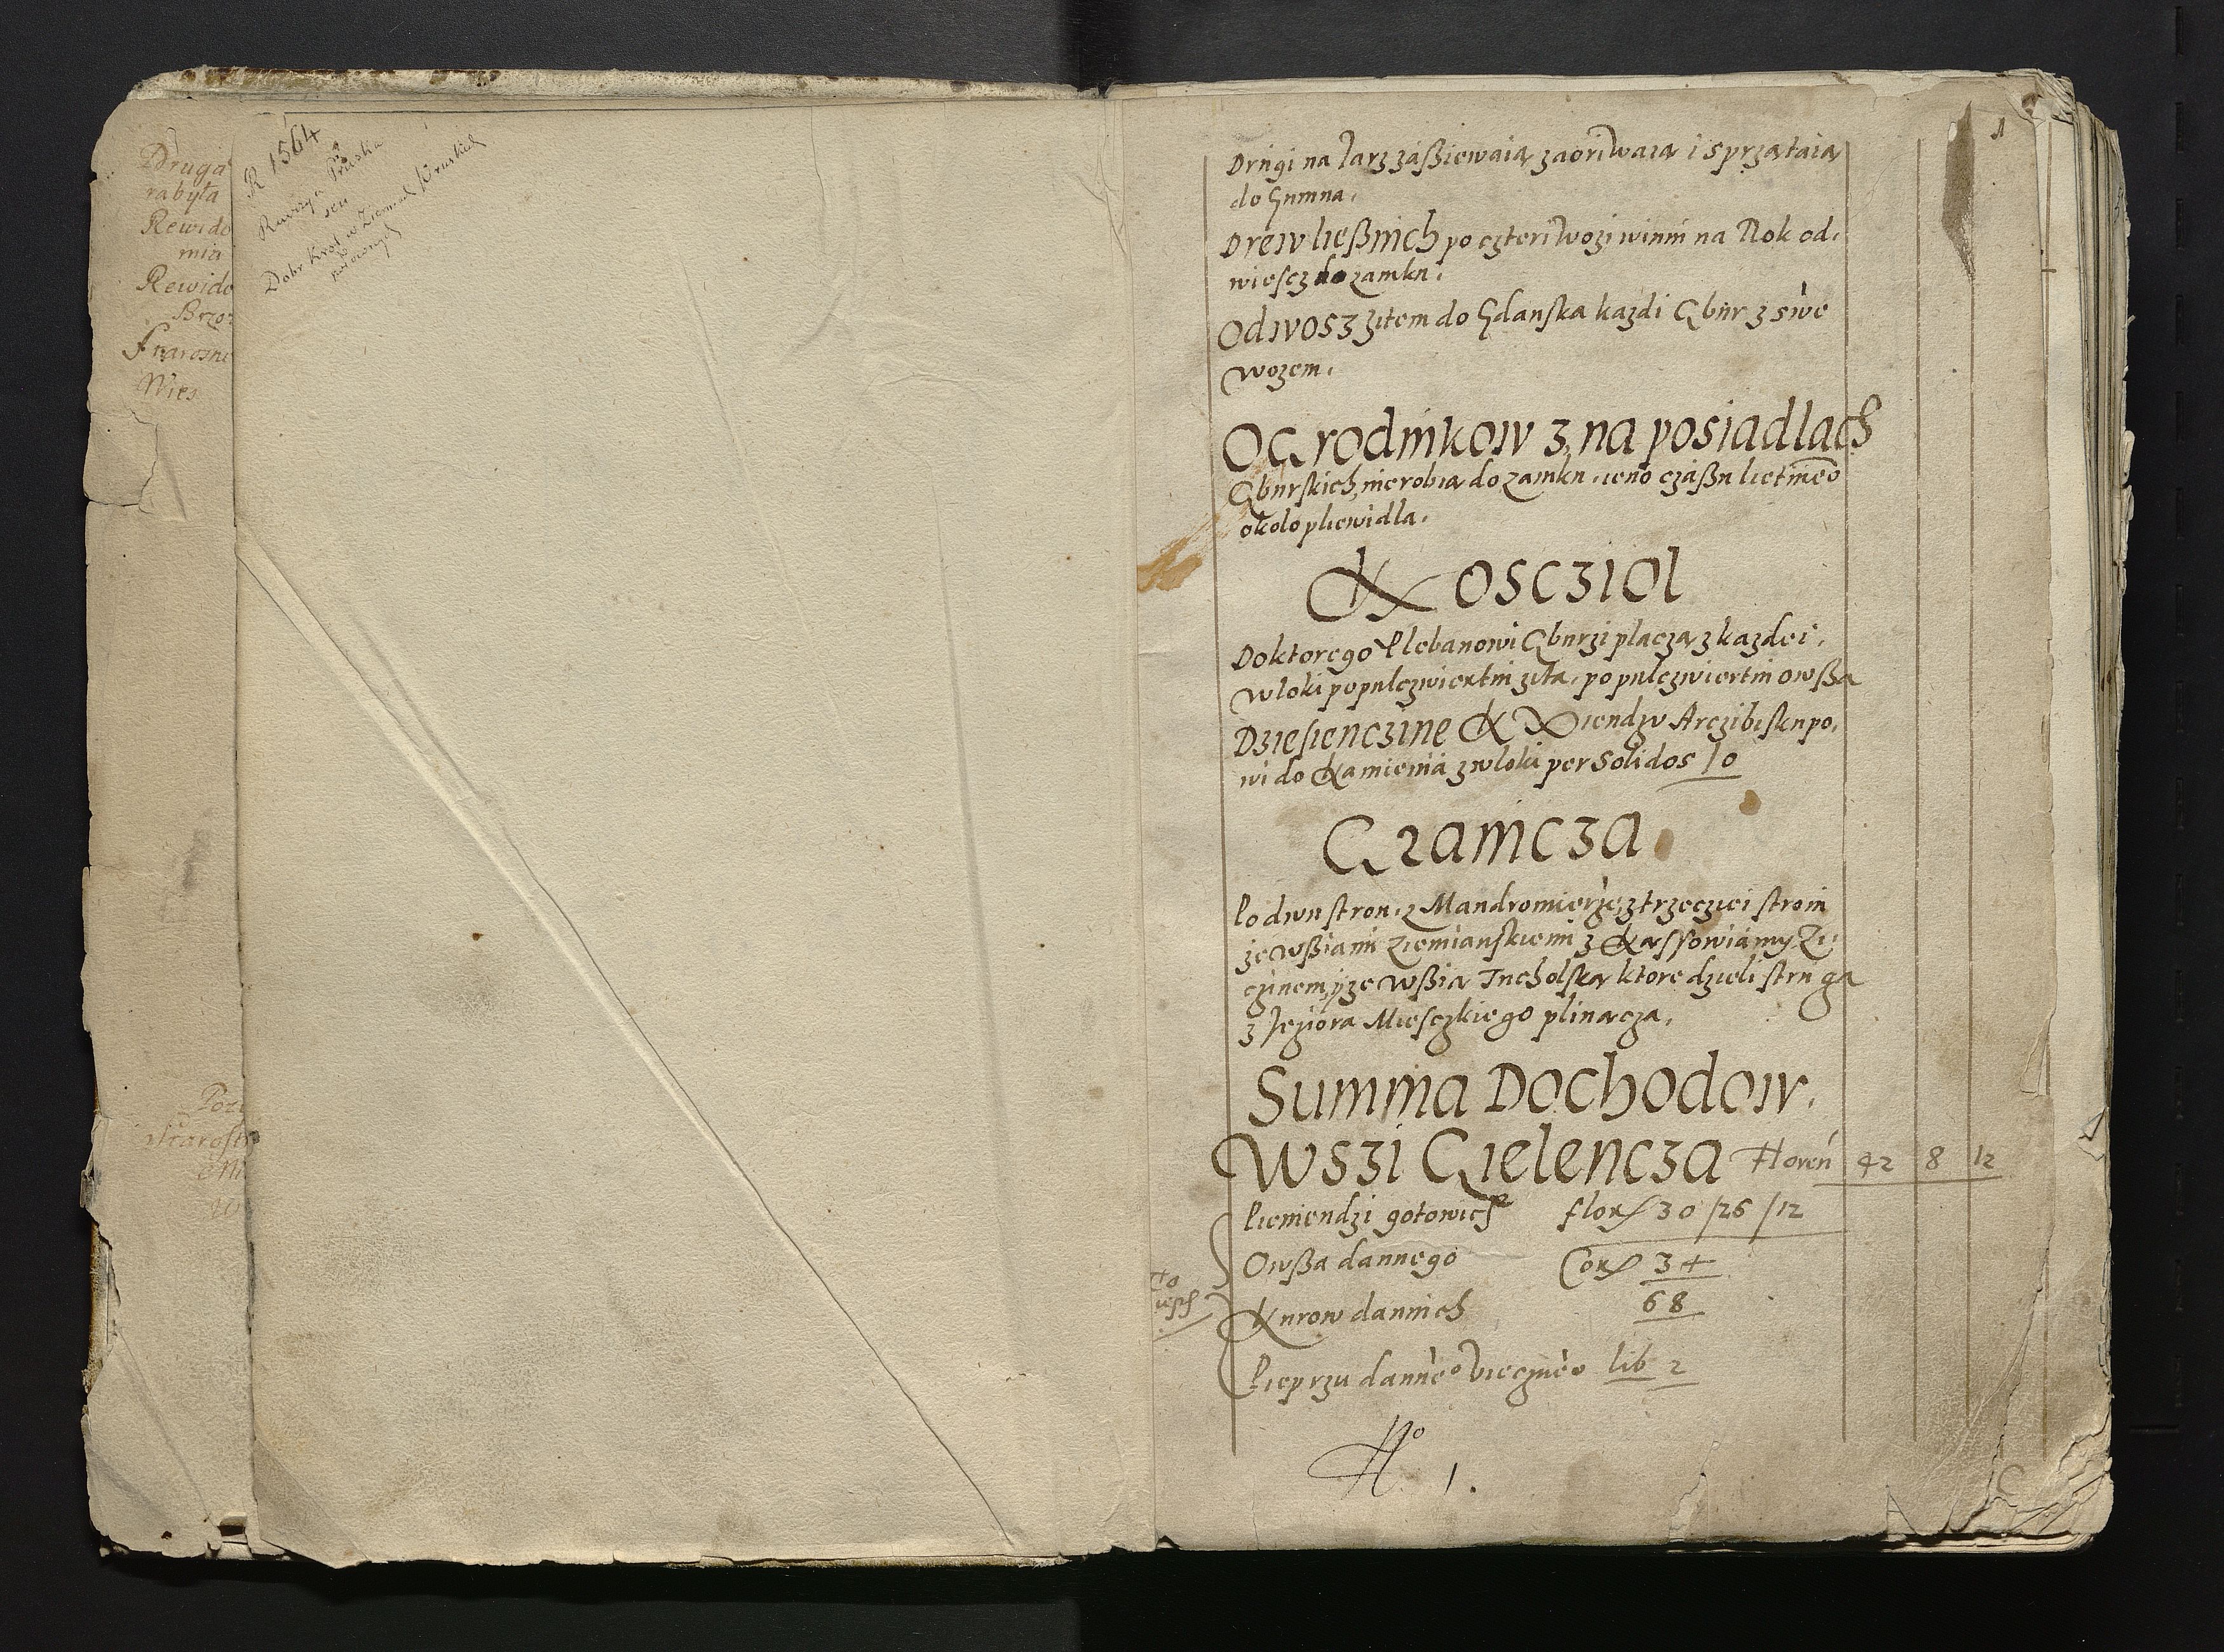 Druga
rabyła
Rewido
mia
Rewido
Brzoz
Starosne
Wies
R 1564
Rewizya Pruska
seu
Dobr Krol w Ziemiach Pruskich
położonych
Starost
1
Drugi na Jarz zaßiewaią zaoriwaią i sprzątaią
do Gumna.
Drew ließnich po czteri wozi winni na Rok od,
wiescz do zamku.
Odwosz zitem do Gdanska kazdi Gbur z swe
wozem.
Ogrodnikow z na posiadlach
Gburskich, nie robią do zamku, ieno czaßu lietnie͞o
około pliewidla.
Kosczioł
Do ktorego Plebanowi Gburzi placzą z kazdei,
Wloki po pulczwiertni zita, po pulczwiertni owßa
Dziesienczine K Xiendzu Arczibiskupo,
wi do Kamienia z wloki per Solidos 10
Granicza
Po dwu stronu z Mandromierze, z trzecziei stroni
ze wßiami Ziemianskiemi z Karssowiamy Zi,
czinem, y ze wßią Tucholską ktore dzieli struga
z Jeziora Miesczkiego plinącza.
Summa Dochodow.
Wszi Gielencza Floren 42 8 12
Pieniendzi gotowich flor 30 /26 /12
Owßa dannego Cor 34
Kurow dannich 68
Pieprzu danne͞o Vieczne͞o lib 2
No 1.